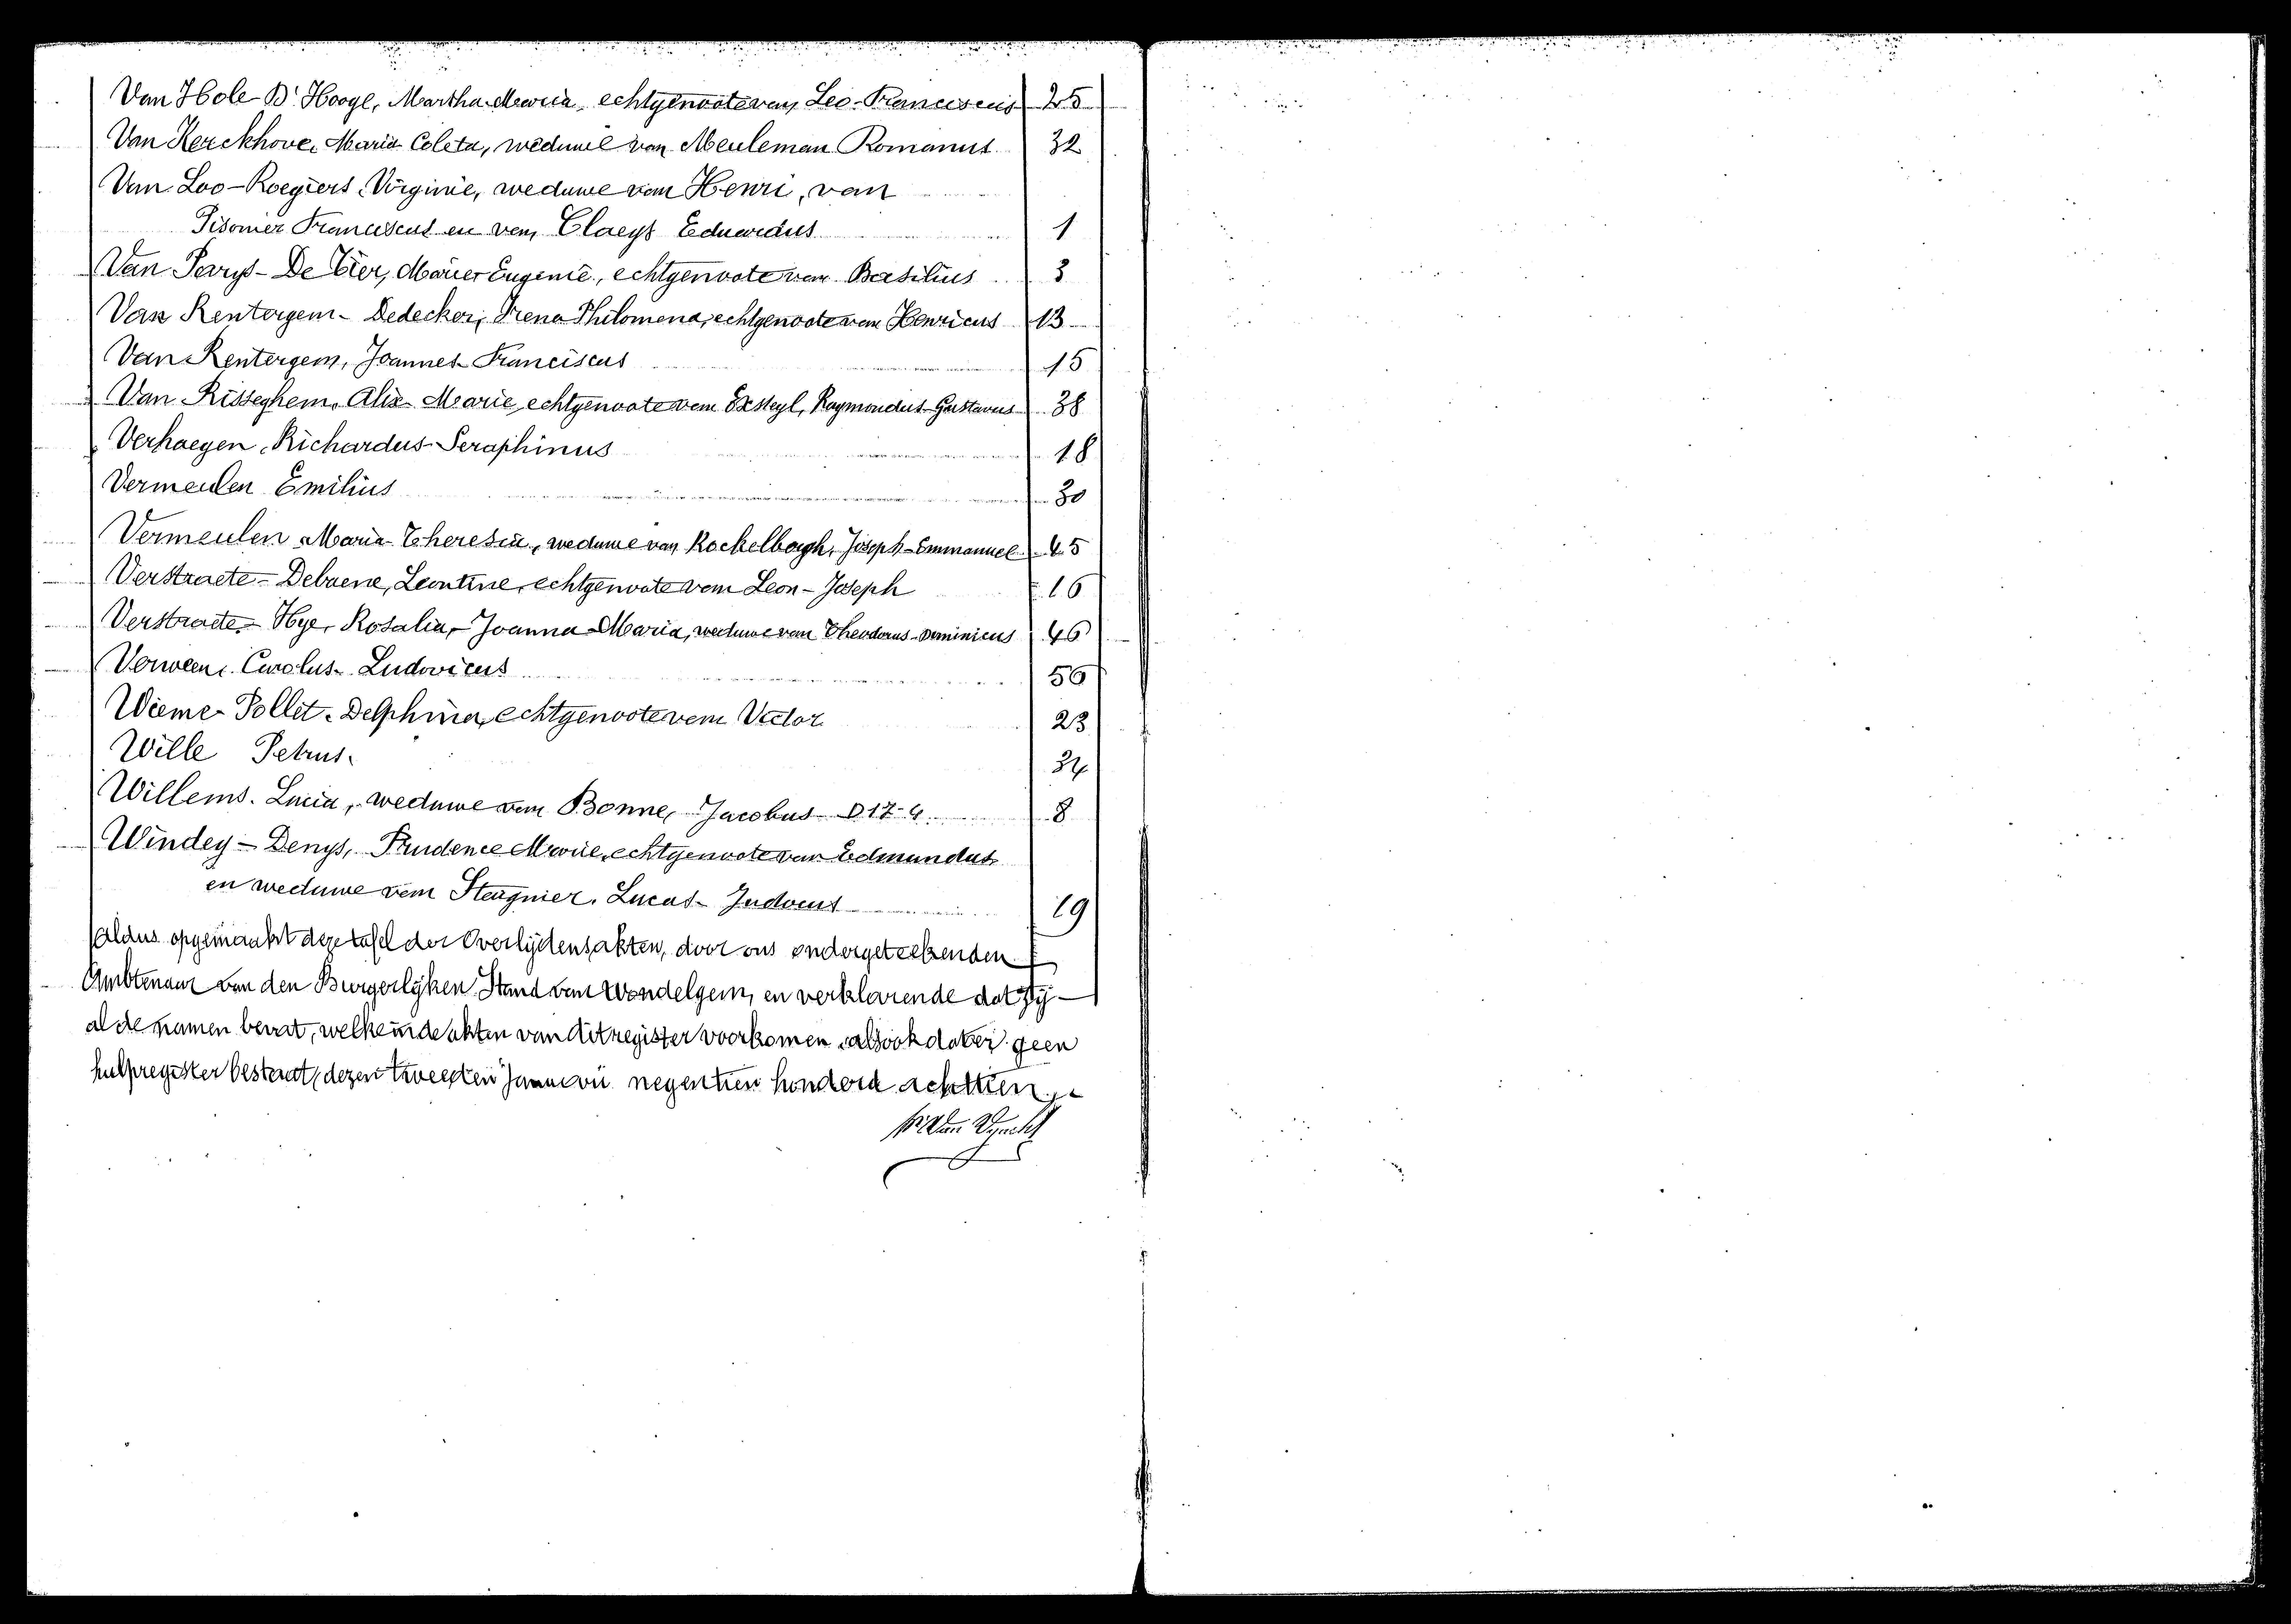 Van Hole-D'Hooge, Martha-Maria, echtgenoote van Leo-Franciscus 25
Van Kerckhove, Maria Coleta, weduwe van Meuleman Romanus 32
Van Loo-Roegiers, Virginie, weduwe van Henri, van
Franciscus en van Claeys Eduardus 1
Van Parys-De Cier, Marie Eugenie, echtgenoote van Basilius 3
Van Rentergem-Dedecker, Irena Philomena, echtgenoote van Henricus 13
Van Rentergem, Joannes Franciscus 15
Van Risseghem, Alix Marie, echtgenoote van Raymondus-Gustavus 38
Verhaegen, Richardus-Seraphinus 18
Vermeulen Emilius 30
Vermeulen Maria Theresia, weduwe van Joseph-Emmanuel 45
Verstraete-Debaene, Leontine, echtgenoote van Leon-Joseph 16
Verstraete-Hye, Rosalia-Joanna-Maria, weduwe van Theodorus-Dominicus 46
Carolus-Ludovicus 56
Wieme-Pollet, Delphina, echtgenoote van Victor 23
Wille Petrus. 34
Willems. Lucia, weduwe van Bonne, Jacobus 8
Windey-Denys, Prudence Marie, echtgenoote van Edmundus
en weduwe van Lucas-Judocus 19
Aldus opgemaakt deze tafel der Overlijdensakten, door ons ondergeteekenden
Ambtenaar van den Burgerlyken Stand van Wondelgem, en verklarende dat zy
al de namen bevat, welke in de akten van dit register voorkomen, alsook dat er geen
hulpregister bestaat, dezen tweeden Januari negentien honderd achttien.